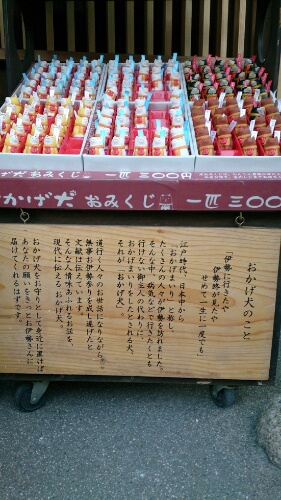 おかげ犬 おみくじ 一匹 三〇〇円
おかげ犬 おみくじ 一匹 三〇〇
おかげ犬のこと
伊勢に行きたや
伊勢路が見たや
せめて一生に一度でも
江戸時代、日本中から
「おかげまいり」と称し、
たくさんの人々が伊勢を訪れました。
そんな中、病気などで行きたくとも
行けない御主人の代わりに、
おかげまいりをしたとされる犬、
それが、「おかげ犬」。
道行く人々のお世話になりながら、
無事お伊勢参りを成し遂げたと
文献は伝えています。
そんな人情味あふれるお話を、
現代に伝える「おかげ犬」。
おかげ犬をお守りとして身近に置けば
あなたの願いもきっとお伊勢さんに
届けてくれるはずです。